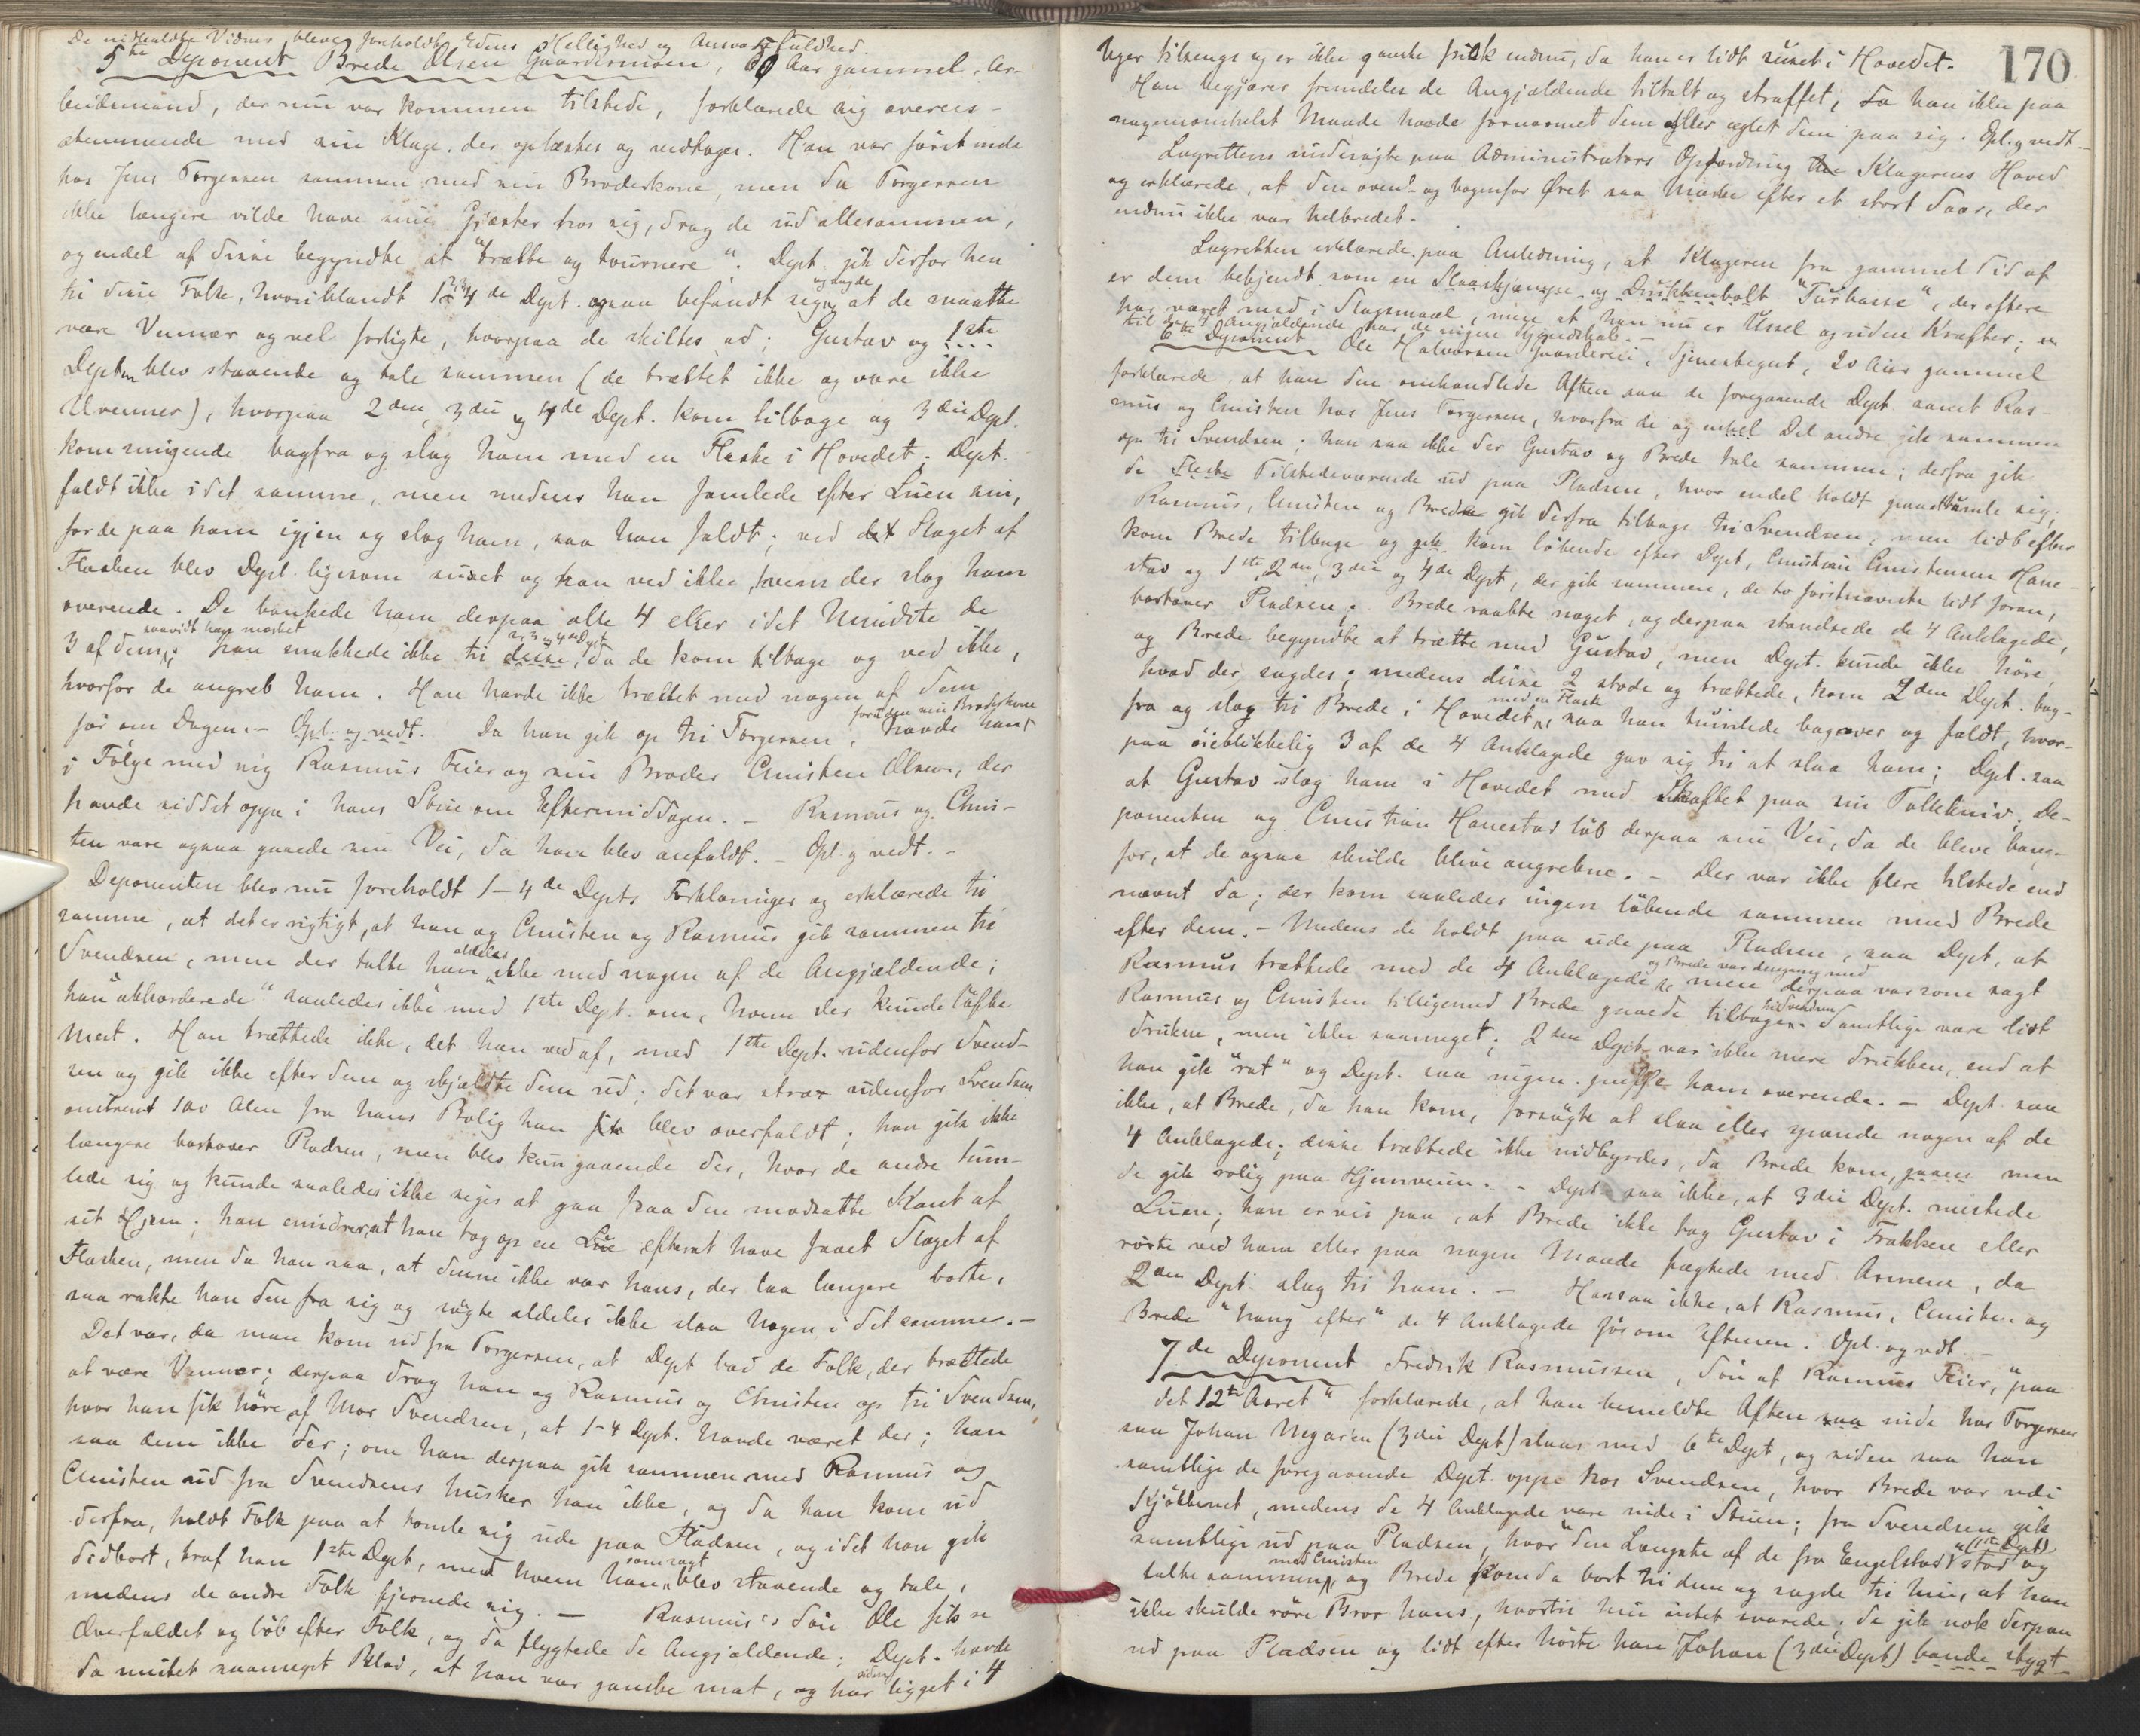 De nidkaldte Vidner bleve foreholdte Edens Hellighed og Ansvarsfuldhed.
5te Deponent Brede Olsen Gaardermoen, 60 Aar gammel, Ar-
beidsmand, der nu var kommen tilstede, forklarede sig overens-
stemmende med sin Klage, der oplæstes og vedtages. Han var først inde
hos Jens Torgersen sammen med sin Broderkone, men da Torgersen
ikke længere vilde have sine Gjæster hos sig, drog de ud allesammen,
og endel af disse begyndte at "trætte og tournere". Dept. gik derfor hen
til disse Folk, hvoriblandt 1, 2, 3, 4de Dept. ogsaa befandt sig, og sagde at de maatte
være Venner og vel forligte, hvorpaa de skiltes ad; Gustav og 1ste
Depten blev staaende og tale sammen (de trættet ikke og vare ikke
Uvenner), hvorpaa 2den, 3die og 4de Dept. kom tilbage og 3die Dept.
kom smigende bagfra og slog ham med en Flaske i Hovedet; Dept.
faldt ikke i det samme, men medens han famlede efter Luen sin,
for de paa ham igjen og slog ham, saa han faldt; ved det Slaget af
Flasken blev Dept. ligesom suset og han ved ikke, hvem der slog ham
overende. De bankede ham derpaa alle 4 eller idet Mindste de
3 af dem, saavidt han mærket; han snakkede ikke til disse, 2, 3 og 4de Dept, da de kom tilbage og ved ikke,
hvorfor de angreb ham. Han havde ikke trættet med nogen af dem
før om Dagen. – Opl. og vedt. Da han gik op til Torgersen, havde han foruden sin Broderkone
i Følge med sig Rasmus Feier og sin Broder Christen Olsen, der
havde siddet oppe i hans Stue om Eftermiddagen. – Rasmus og Chris-
ten vare ogsaa gaaede sin Vei, da han blev anfaldt. – Opl. g vedt. –
Deponenten blev nu foreholdt 1–4de Depts Forklaringer og erklærede til
samme, at det er rigtigt, at han og Christen og Rasmus gik sammen til
Svendsen, men der talte han aldeles ikke med nogen af de Angjældende;
han "akkorderede" saaledes ikke med 1ste Dept. om, hvem der kunde løfte
mest. Han trættede ikke, det han ved af, med 1ste Dept. udenfor Svend-
sen og gik ikke efter dem og skjældte dem ud; det var strax udenfor Svendsen
omtrent 100 Alen fra hans Bolig han blev overfaldt; han gik ikke
længere bortover Pladsen, men blev kun gaaende der, hvor de andre tum-
lede sig og kunde saaledes ikke siges at gaa paa den modsatte Kant af
sit Hjem; han erindrer, at han tog op en Lue efterat have faaet Slaget af
Flasken, men da han saa, at denne ikke var hans, der laa længere borte,
saa rakte han den fra sig og søgte aldeles ikke slaa Nogen i det samme. –
Det var, da man kom ud fra Torgersen, at Dept bad de Folk, der trættede
at være Venner; derpaa drog han og Rasmus og Christen op til Svendsen,
hvor han fik høre af Mor Svendsen, at 1–4 Dept. havde været der; han
saa dem ikke der; om han derpaa gik sammen med Rasmus og
Christen ud fra Svendsens husker han ikke, og da han kom ud
derfra, holdt Folk paa at tumle sig ude paa Pladsen, og idet han gik
didbort, traf han 1ste Dept, med hvem han som sagt blev staaende og tale,
medens de andre Folk fjernede sig. – Rasmus's Søn Ole fik se
Overfaldet og løb efter Folk, og da flygtede de Angjældende; Dept. havde
da mistet saameget Blod, at han var ganske mat, og har siden ligget i 4
170
Uger tilsengs og er ikke ganske frisk endnu, da han er lidt suset i Hovedet.
Han begjærer fremdeles de Angjældende tiltalt og straffet, da han ikke paa
nogensomhelst Maade havde fornærmet dem eller æglet dem paa sig. Opl. g vedt. –
Lagrettens undersøgte paa Administrators Opfordring Klagerens Hoved
og erklærede, at den oven- og bagenfor Øret saa Mærke efter et stort Saar, der
endnu ikke var helbredet.
Lagretten erklærede paa Anledning, at Klageren fra gammel Tid af
er dem bekjendt som en Slaaskjæmpe og Drukkenbolt "Turbasse", der oftere
har været med i Slagsmaal, mige at han nu er Ussel og uden Kræfter;
til de Angjældende har de ingen Kjendskab. –
6te Deponent Ole Halvorsen Gaardereie, Tjenestegut, 20 Aar gammel
forklarede, at han den omhandlede Aften saa de foregaaende Dept samt Ras-
mus og Christen hos Jens Torgersen, hvorfra de og endel Del andre gik sammen
op til Svendsen; han saa ikke der Gustav og Brede tale sammen; derfra gik
de fleste Tilstedeværende ud paa Pladsen, hvor endel holdt paa at tumle sig;
Rasmus, Christen og Brede gik derfra tilbage til Svendsen, men lidt efter
kom Brede tilbage og kom løbende efter Dept, Christian Christensen Hane-
stad og 1ste, 2den, 3die og 4de Dept, der gik sammen, de to førstnævnte lidt foran,
bortover Pladsen; Brede raabte noget, og derpaa standsede de 4 Anklagede,
og Brede begyndte at trætte med Gustav, men Dept. kunde ikke høre,
hvad der sagdes; medens disse 2 stode og trættede, kom 2den Dept. bag-
fra og slog til Brede i Hovedet med en Flaske, saa han tumlede bagover og faldt, hvor-
paa øieblikkelig 3 af de 4 Anklagede gav sig til at slaa ham; Dept. saa
at Gustav slog ham i Hovedet med Skaftet paa sin Tollekniv; De-
ponenten og Christian Hanestad løb derpaa sin Vei, da de bleve bange
for, at de ogsaa skulde blive angrebne. – Der var ikke flere tilstede end
nævnt da; der kom saaledes ingen løbende sammen med Brede
efter dem. – Medens de holdt paa ude paa Pladsen, saa Dept. at
Rasmus trættede med de 4 Anklagede og Brede var dengang med, men derpaa var som sagt
Rasmus og Christen tilligemed Brede gaaede tilbage til Svendsen. Samtlige vare lidt
drukne, men ikke saameget; 2den Dept. var ikke mere drukken, end at
han gik "rat" og Dept. saa ingen puffe ham overende. – Dept. saa
ikke, at Brede, da han kom, forsøgte at slaa eller spænde nogen af de
4 Anklagede; disse trættede ikke indbyrdes, da Brede kom, men
de gik rolig paa Hjemveien. – Dept. saa ikke, at 3die Dept. mistede
Luen; han er vis paa, at Brede ikke tog Gustav i Frakken eller
rørte ved ham eller paa nogen Maade fægtede med Armene, da
2den Dept. slog til ham. – Han saa ikke, at Rasmus, Christen og
Brede "hang efter" de 4 Anklagede før om Aftenen. Opl. og vedt. –
7de Deponent Fredrik Rasmussen, Søn af Rasmus Feier, "paa
det 12te Aaret" forklarede, at han bemeldte Aften inde hos Torgersen
saa Johan Negaren (3die Dept) slaas med 6te Dept, og siden saa han
samtlige de foregaaende Dept. oppe hos Svendsen, hvor Brede var ude i
Kjøkkenet, medens de 4 Anklagede vare inde i Stuen; fra Svendsen gik
samtlige ud paa Pladsen, hvor "den Længste af de fra Engelstad" (1ste Dept) stod og
talte sammen med Christen, og Brede kom da bort til dem og sagde til hin, at han
ikke skulde røre Bror hans, hvortil hin intet svarede; de gik nok derpaa
ud paa Pladsen og lidt efter hørte han Johan (3die Dept) bande stygt